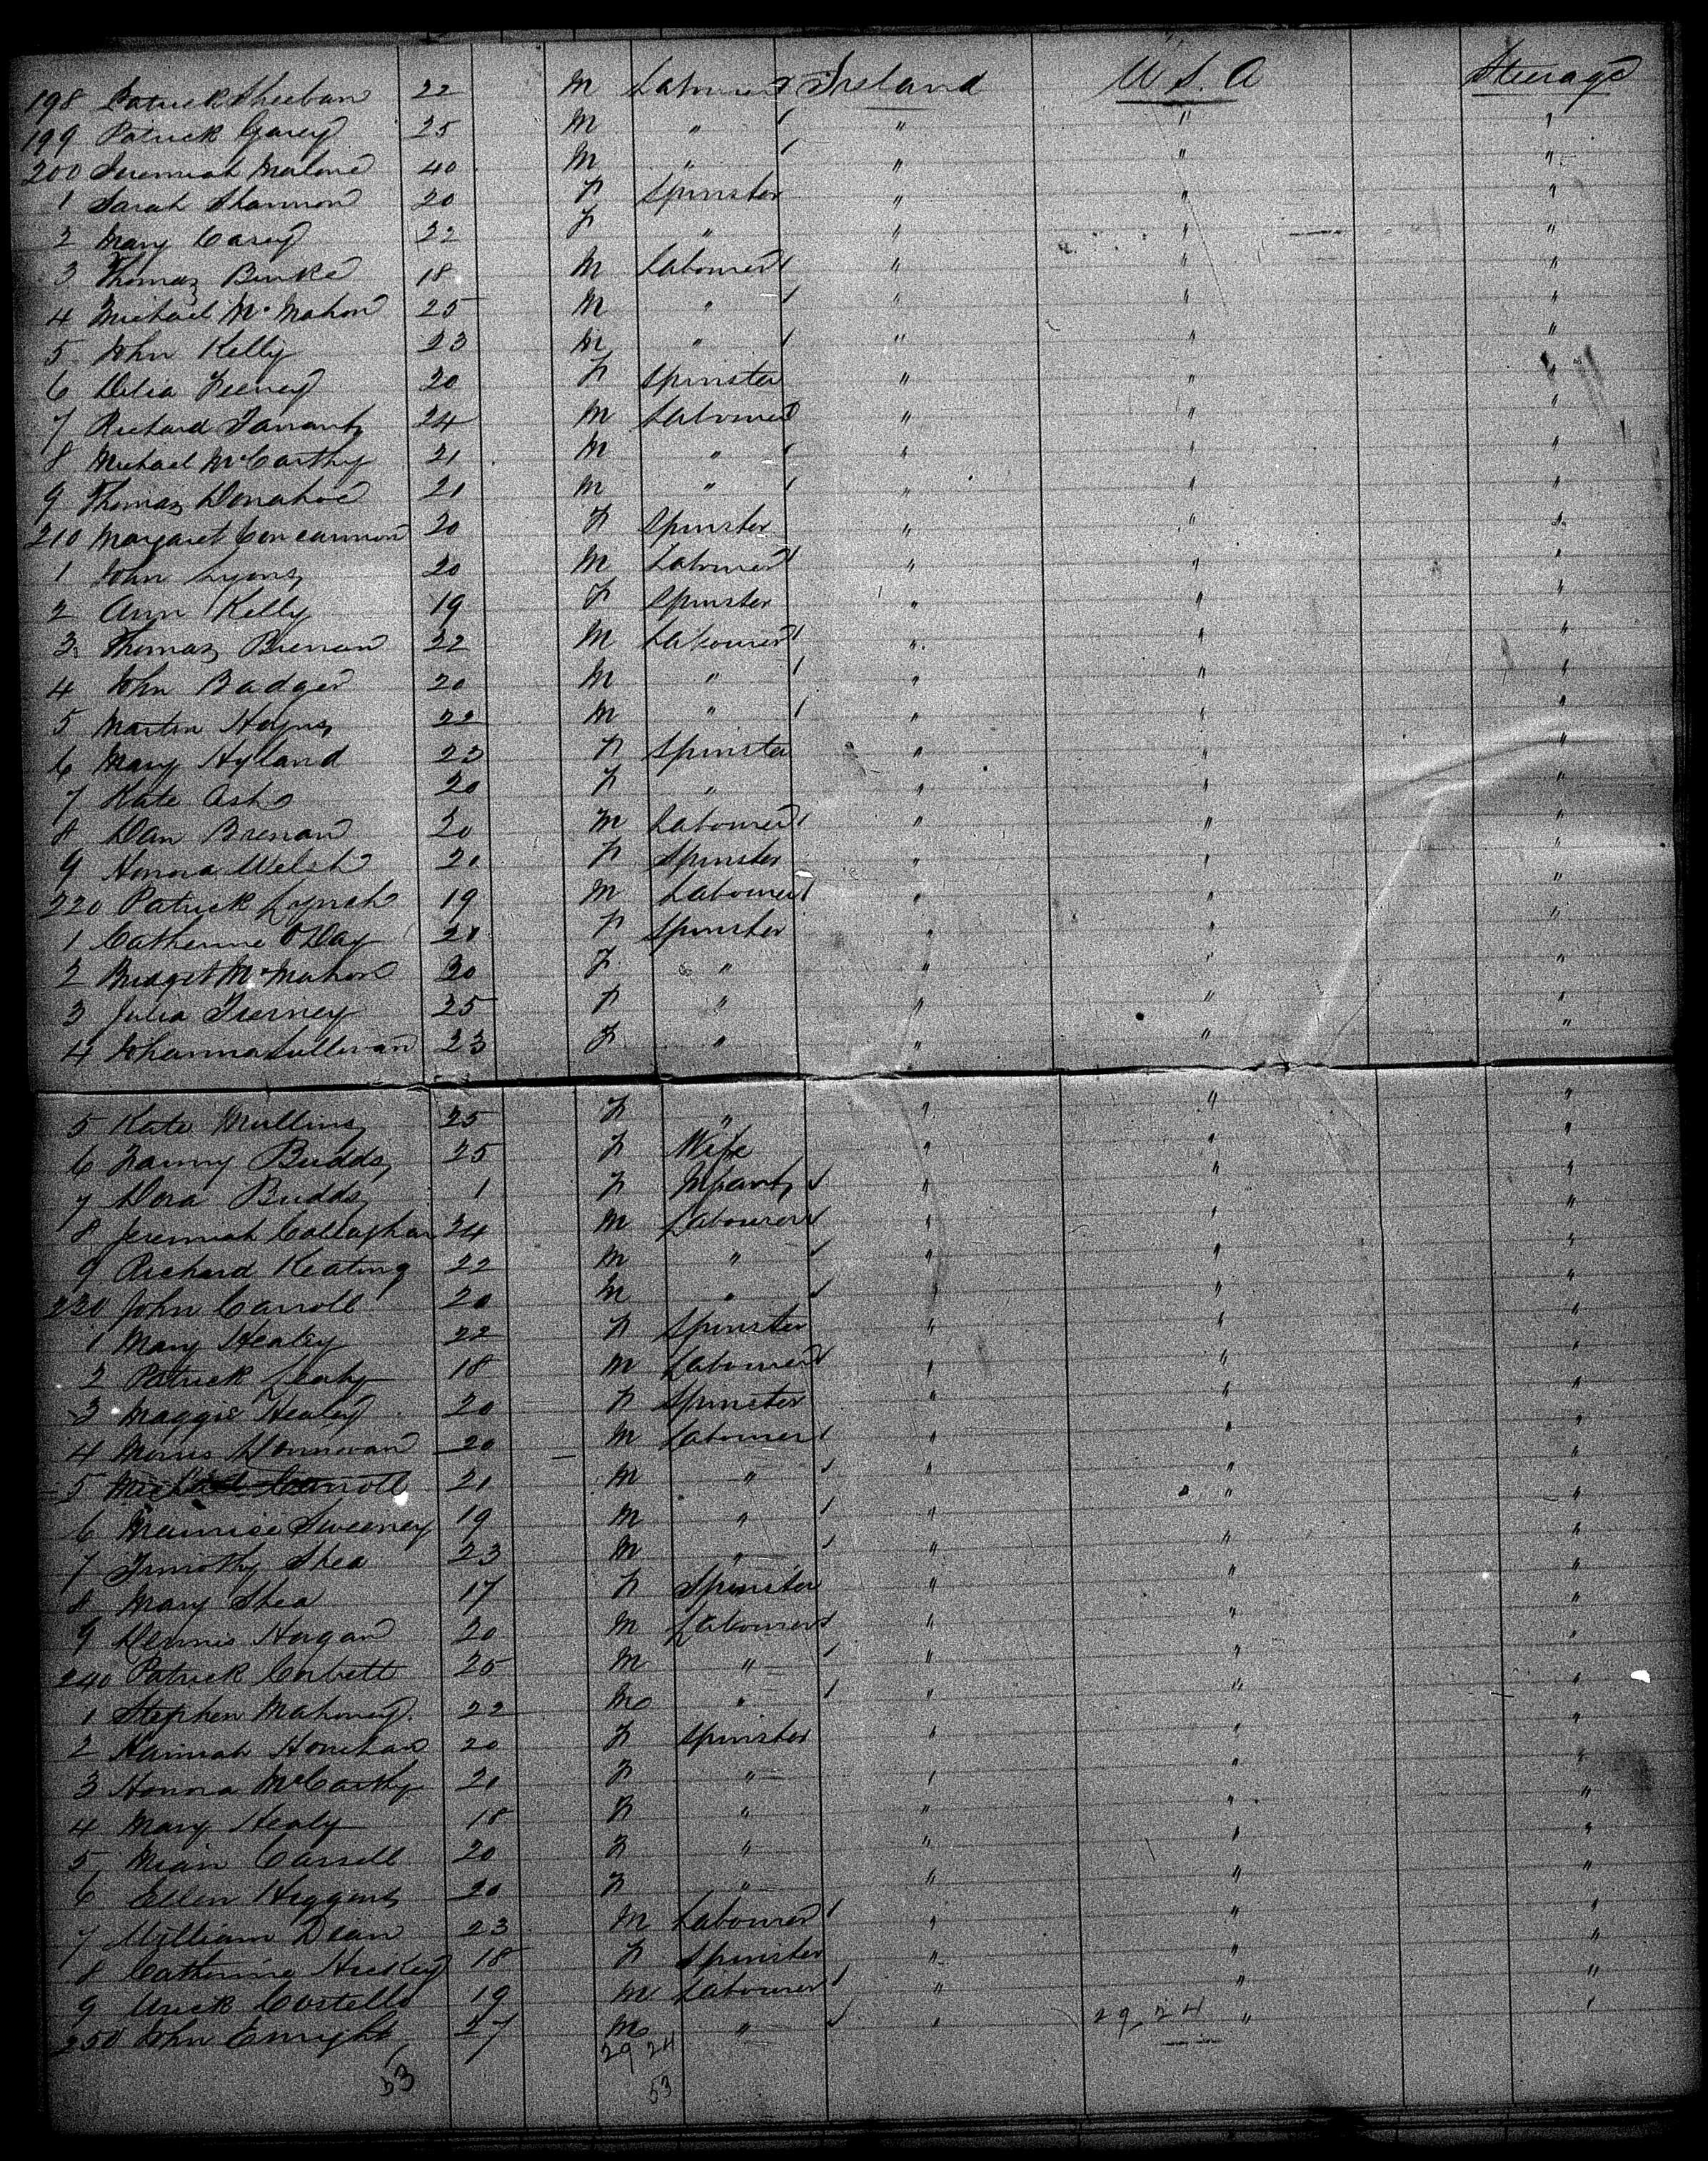 198 Patrick Sheehan 22 M Labourer Ireland U S. A Steerage
199 Patrick Garey 25 M " " " "
200 Jeremiah Malone 40 M " " " "
1 Sarah Shannon 20 F Spinster " " "
2 Mary Carey 22 F " " " "
3 Thomas Burke 18 M Labourer " " "
4 Michael McMahon 25 M " " " "
5 John Kelly 23 M " " " "
6 Delia Feeney 20 F Spinster " " "
7 Richard Tarrant 24 M Labourer " " "
8 Michael McCarthy 21 M " " " "
9 Thomas Donahoe 21 M " " " "
210 Margaret Concannon 20 F Spinster " " "
1 John Lyons 20 M Labourer " " "
2 Ann Kelly 19 F Spinster " " "
3 Thomas Brenan 22 M Labourer " " "
4 John Badger 20 M " " " "
5 Martin Haynes 22 M " " " "
6 Mary Hyland 23 F Spinster " " "
7 Kate Ash 20 F " " " "
8 Dan Brenan 20 M Labourer " " "
9 Honora Welsh 21 F Spinster " " "
220 Patrick Lynch 19 M Labourer " " "
1 Catherine O'Day 21 F Spinster " " "
2 Bridget McMahon 30 F " " " "
3 Julia Tierney 25 F " " " "
4 Johanna Sullivan 23 F " " " "
5 Kate Mullins 25 F " " " "
6 Fanny Budds 25 F Wife " " "
7 Dora Budds 1 F Infant " " "
8 Jeremiah Callaghan 24 M Labourer " " "
9 Richard Keating 22 M " " " "
230 John Carroll 20 M " " " "
1 Mary Healey 22 F Spinster " " "
2 Patrick Leahy 18 M Labourer " " "
3 Maggie Healey 20 F Spinster " " "
4 Morris Donnevan 20 M Labourer " " "
5 Michael Carroll 21 M " " " "
6 Maurise Sweeney 19 M " " " "
7 Timothy Shea 23 M " " " "
8 Mary Shea 17 F Spinster " " "
9 Dennis Hogan 20 M Labourer " " "
240 Patrick Corbett 25 M " " " "
1 Stephen Mahoney 22 M " " " "
2 Hannah Honehan 20 F Spinster " " "
3 Honora McCarthy 21 F " " " "
4 Mary Healy 18 F " " " "
5 Carroll 20 F " " " "
6 Ellen Higgins 20 F " " " "
7 William Dean 23 M Labourer " " "
8 Catherine Hickey 18 F Spinster " " "
9 Costello 19 M Labourer " " "
250 John Enright 27 M " " 29 24 " "
29 24
53 53